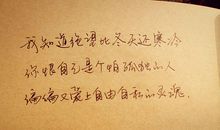 我知道绝望比冬天还寒冷
你恨自己是个怕孤独的人
偏偏又爱上自由自私的灵魂